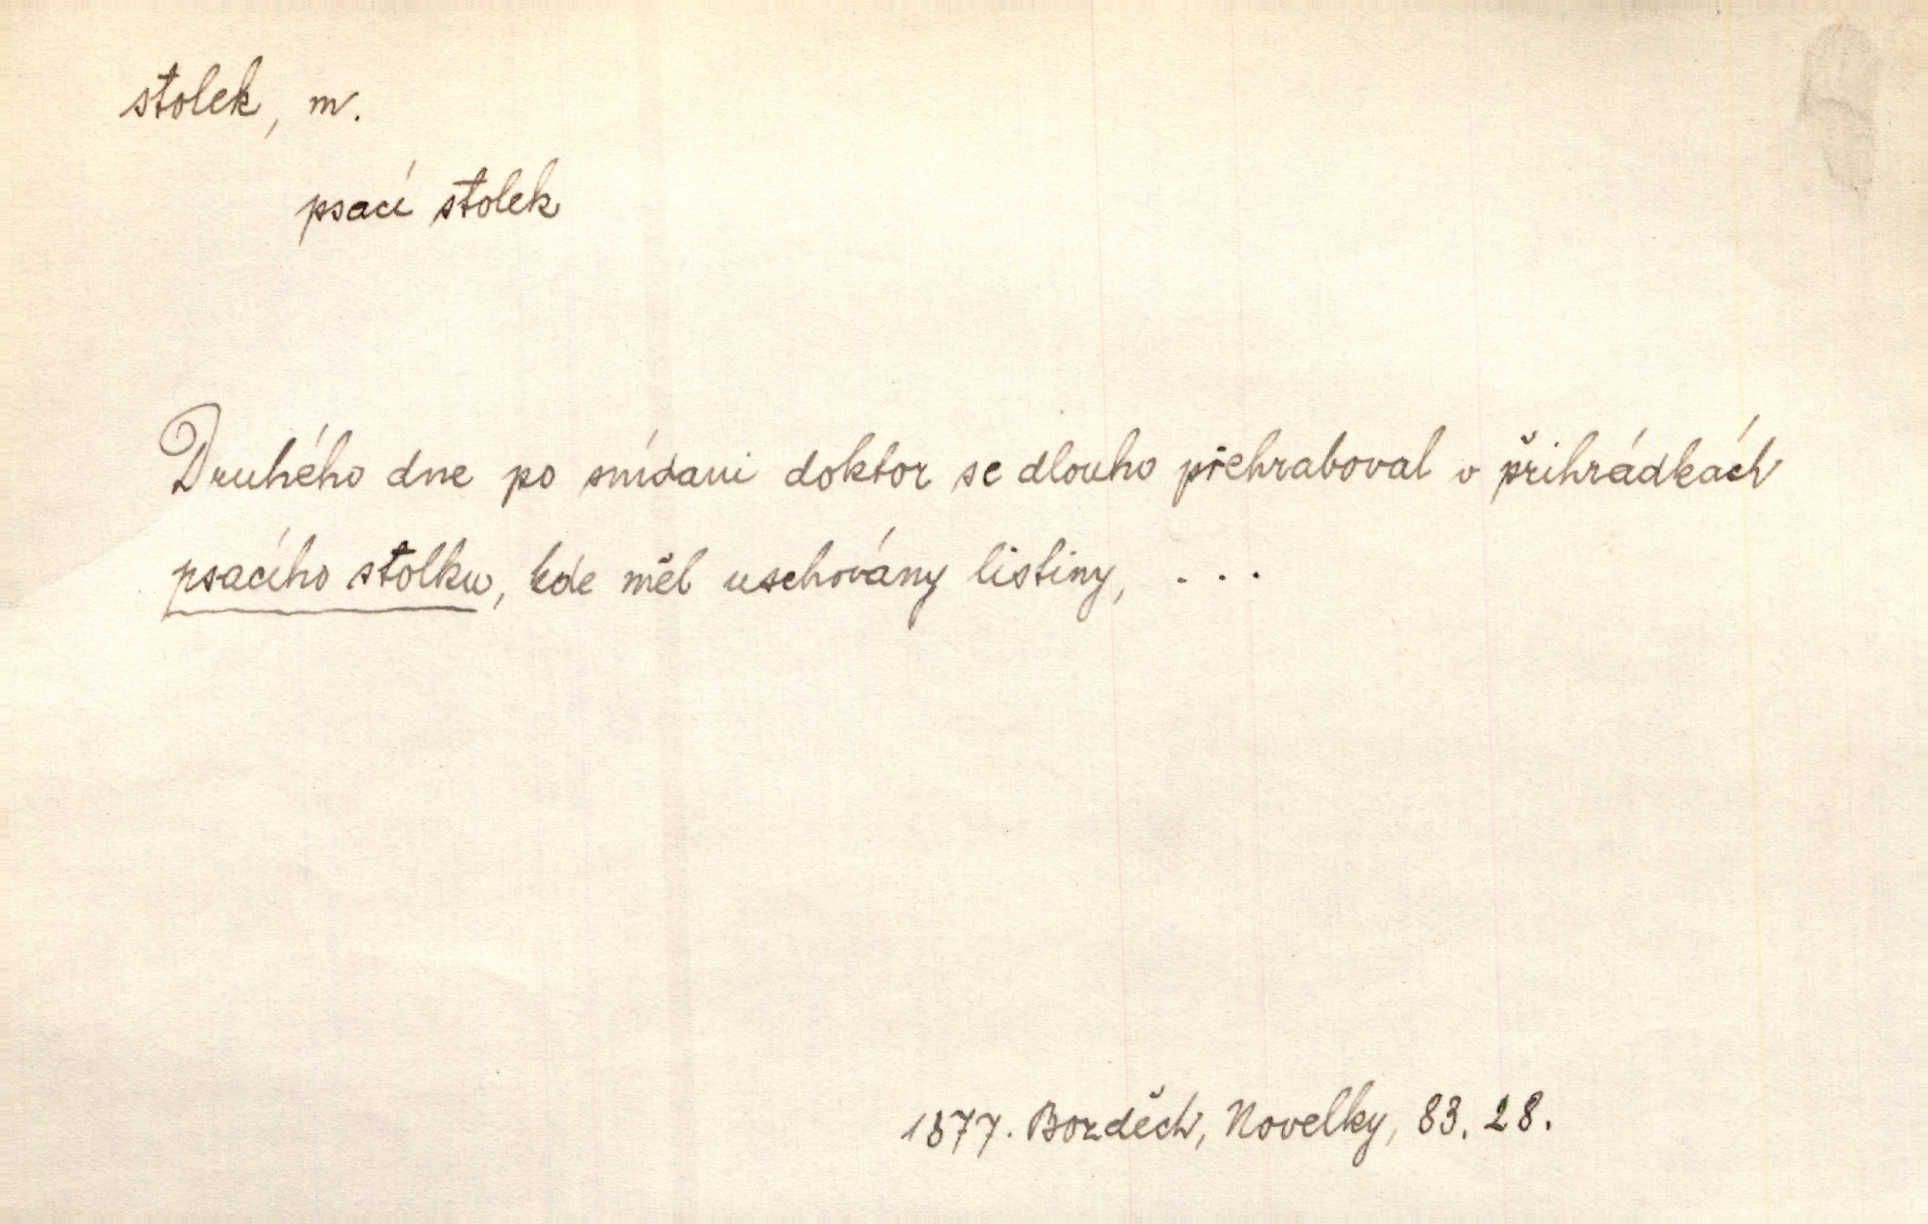 stolek, m.
psací stolek
Druhého dne po snídani doktor se dlouho přehraboval v přihrádkách
psacího stolku, kde měl uschovány listiny, . . .
1877. Bozděch, Novelky, 83. 28.